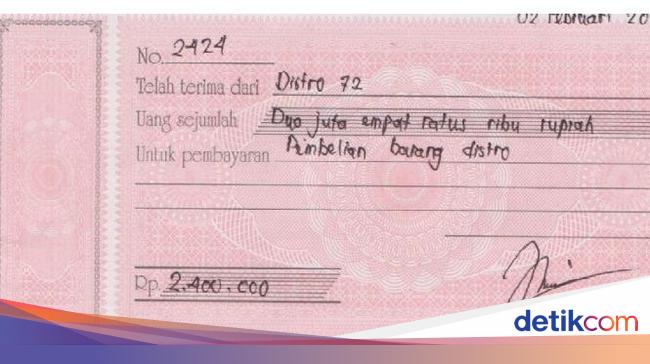 02 Februari 20
No. 2424
Telah terima dari Distro 72
Uang sejumlah Dua juta empat ratus ribu rupiah
Untuk pembayaran Pembelian barang distro
Rp. 2.400.000
detikcom